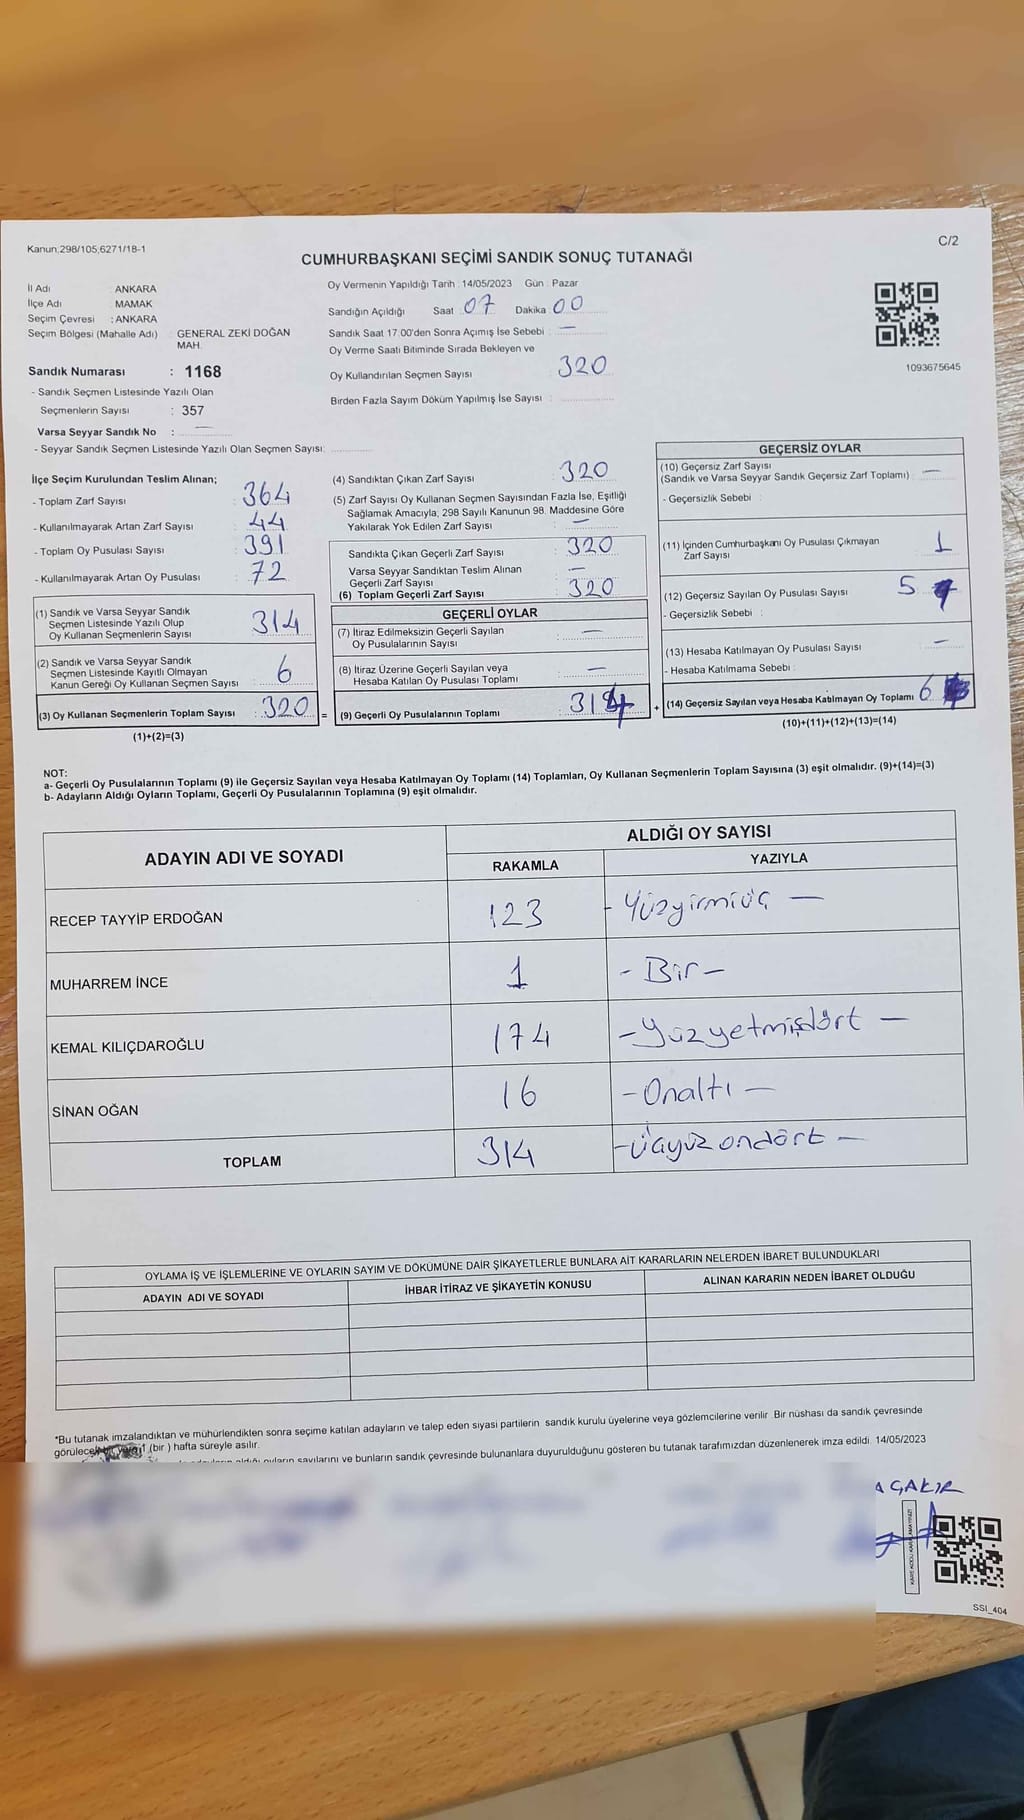 Kanun;298/105;6271/18-1
C/2
CUMHURBAŞKANI SEÇİMİ SANDIK SONUÇ TUTANAĞI
İl Adı ANKARA
İlçe Adı MAMAK
Seçim Çevresi : ANKARA
Seçim Bölgesi (Mahalle Adı) GENERAL ZEKİ DOĞAN
MAH.
Sandık Numarası : 1168
- Sandık Seçmen Listesinde Yazılı Olan
Seçmenlerin Sayısı : 357
Varsa Seyyar Sandık No : —
- Seyyar Sandık Seçmen Listesinde Yazılı Olan Seçmen Sayısı:
Oy Vermenin Yapıldığı Tarih : 14/05/2023 Gün : Pazar
Sandığın Açıldığı Saat : 07 Dakika : 00
Sandık Saat 17.00'den Sonra Açımış İse Sebebi : —
Oy Verme Saati Bitiminde Sırada Bekleyen ve
Oy Kullandırılan Seçmen Sayısı : 320
Birden Fazla Sayım Döküm Yapılmış İse Sayısı :
1093675645
İlçe Seçim Kurulundan Teslim Alınan;
- Toplam Zarf Sayısı : 364
- Kullanılmayarak Artan Zarf Sayısı : 44
- Toplam Oy Pusulası Sayısı : 391
- Kullanılmayarak Artan Oy Pusulası : 72
(1) Sandık ve Varsa Seyyar Sandık
Seçmen Listesinde Yazılı Olup
Oy Kullanan Seçmenlerin Sayısı : 314
(2) Sandık ve Varsa Seyyar Sandık
Seçmen Listesinde Kayıtlı Olmayan
Kanun Gereği Oy Kullanan Seçmen Sayısı : 6
(3) Oy Kullanan Seçmenlerin Toplam Sayısı : 320 =
(1)+(2)=(3)
(4) Sandıktan Çıkan Zarf Sayısı : 320
(5) Zarf Sayısı Oy Kullanan Seçmen Sayısından Fazla İse, Eşitliği
Sağlamak Amacıyla; 298 Sayılı Kanunun 98. Maddesine Göre
Yakılarak Yok Edilen Zarf Sayısı : —
Sandıkta Çıkan Geçerli Zarf Sayısı : 320
Varsa Seyyar Sandıktan Teslim Alınan
Geçerli Zarf Sayısı : —
(6) Toplam Geçerli Zarf Sayısı : 320
GEÇERLİ OYLAR
(7) İtiraz Edilmeksizin Geçerli Sayılan
Oy Pusulalarının Sayısı : —
(8) İtiraz Üzerine Geçerli Sayılan veya
Hesaba Katılan Oy Pusulası Toplamı : —
(9) Geçerli Oy Pusulalarının Toplamı : 314 +
GEÇERSİZ OYLAR
(10) Geçersiz Zarf Sayısı
(Sandık ve Varsa Seyyar Sandık Geçersiz Zarf Toplamı) : —
- Geçersizlik Sebebi :
(11) İçinden Cumhurbaşkanı Oy Pusulası Çıkmayan
Zarf Sayısı : 1
(12) Geçersiz Sayılan Oy Pusulası Sayısı : 5
- Geçersizlik Sebebi :
(13) Hesaba Katılmayan Oy Pusulası Sayısı : —
- Hesaba Katılmama Sebebi :
(14) Geçersiz Sayılan veya Hesaba Katılmayan Oy Toplamı : 6
(10)+(11)+(12)+(13)=(14)
NOT:
a- Geçerli Oy Pusulalarının Toplamı (9) ile Geçersiz Sayılan veya Hesaba Katılmayan Oy Toplamı (14) Toplamları, Oy Kullanan Seçmenlerin Toplam Sayısına (3) eşit olmalıdır. (9)+(14)=(3)
b- Adayların Aldığı Oyların Toplamı, Geçerli Oy Pusulalarının Toplamına (9) eşit olmalıdır.
ADAYIN ADI VE SOYADI ALDIĞI OY SAYISI
RAKAMLA YAZIYLA
RECEP TAYYİP ERDOĞAN 123 - Yüzyirmiüç —
MUHARREM İNCE 1 - Bir -
KEMAL KILIÇDAROĞLU 174 - Yüzyetmişdört —
SİNAN OĞAN 16 - Onaltı —
TOPLAM 314 - Üçyüzondört —
OYLAMA İŞ VE İŞLEMLERİNE VE OYLARIN SAYIM VE DÖKÜMÜNE DAİR ŞİKAYETLERLE BUNLARA AİT KARARLARIN NELERDEN İBARET BULUNDUKLARI
ADAYIN ADI VE SOYADI İHBAR İTİRAZ VE ŞİKAYETİN KONUSU ALINAN KARARIN NEDEN İBARET OLDUĞU
*Bu tutanak imzalandıktan ve mühürlendikten sonra seçime katılan adayların ve talep eden siyasi partilerin sandık kurulu üyelerine veya gözlemcilerine verilir. Bir nüshası da sandık çevresinde
(bir ) hafta süreyle asılır.
oyların sayılarını ve bunların sandık çevresinde bulunanlara duyurulduğunu gösteren bu tutanak tarafımızdan düzenlenerek imza edildi. 14/05/2023
A ÇAKIR
SSI_404